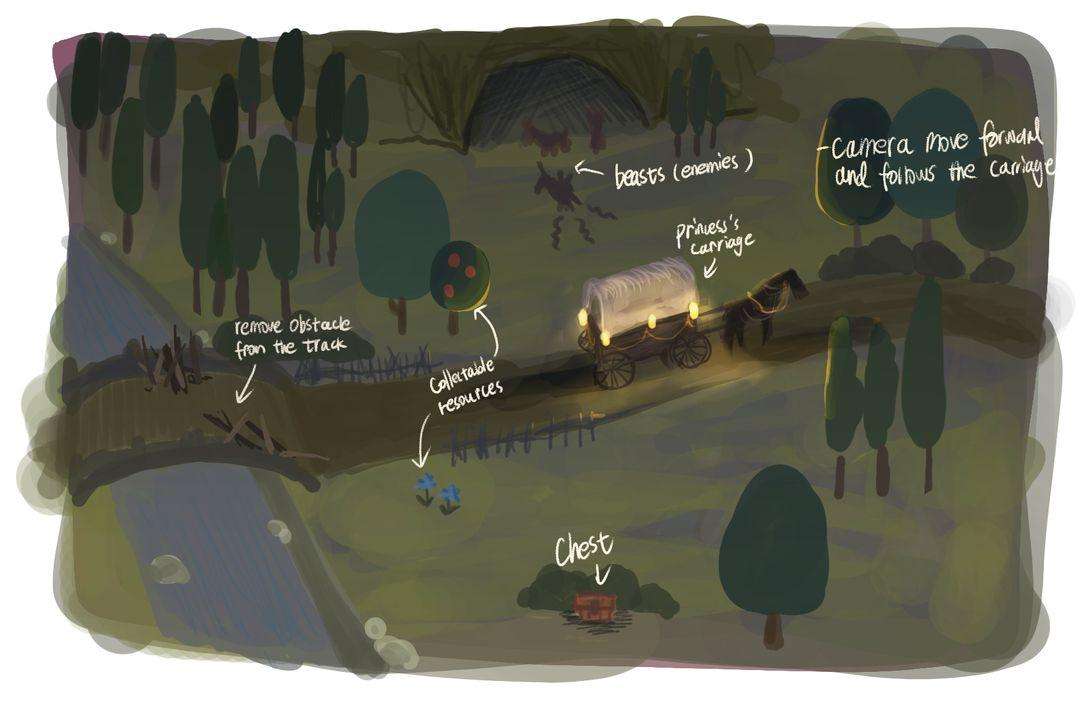 -Camera move forward
and follows the carriage
beasts (enemies)
Princess's
carriage
remove obstacle
from the track
Collectable
resources
Chest